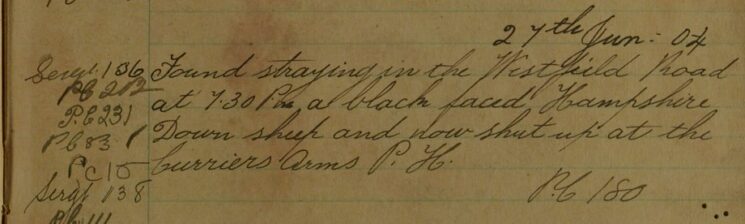 27th Jun: 04
Sergt. 136 Found straying in the Westfield Road
PC 202
at 7.30 Pm a black faced Hampshire
P.C 231
Down sheep and now shut up at the
PC 83
Curriers Arms P. H.
PC 15
Sergt 138
P.C 180
PC 111